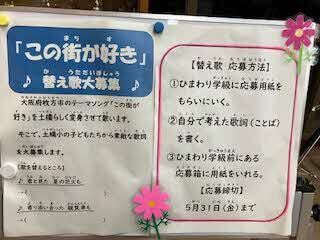 「この街が好き」
♪ 替え歌大募集 ♪
大阪府枚方市のテーマソング「この街が
好き」を土橋らしく変身させて歌います。
そこで、土橋小の子どもたちから素敵な歌詞
を大募集します。
【歌を替えるところ】
♪君と見た 夏の花火も
→(
♪寄り添い合った 観覧車も
→(
【替え歌 応募方法】
①ひまわり学級に応募用紙を
もらいにいく。
②自分で考えた歌詞(ことば)
を書く。
③ひまわり学級前にある
応募箱に用紙をいれる。
【応募締切】
5月31日(金)まで